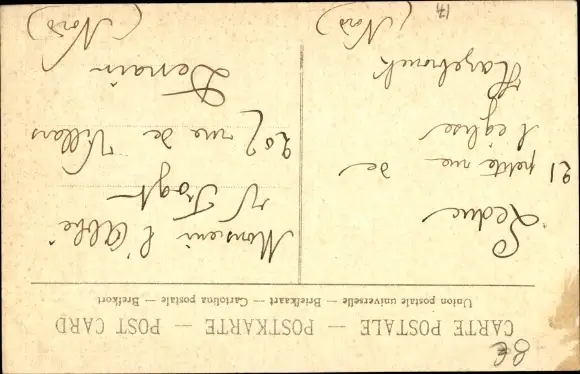 8€
CARTE POSTALE — POSTKARTE — POST CARD
Union postale universelle — Briefkaart — Cartolina postale — Brefkort
Leduc
21 petite rue de
l'église
Hazebrouck
(Nord)
Monsieur l'Abbé
Trogh
202 rue de Villars
Denain
(Nord)